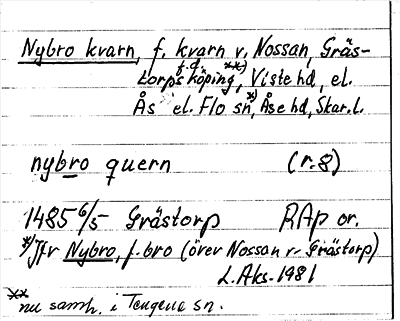 Nybro kvarn, f. kvarn v. Nossan, Gräs-
f.d. **)
torps köping, Viste hd, el.
Ås el. Flo sn *), Åse hd, Skar. l.
nybro quern (r. 8)
1485 6/5 Grästorp RAp or.
*) Jfr Nybro, f. bro (över Nossan v. Grästorp)
L. Aks. 1981
** nu samh. i Tengene sn.